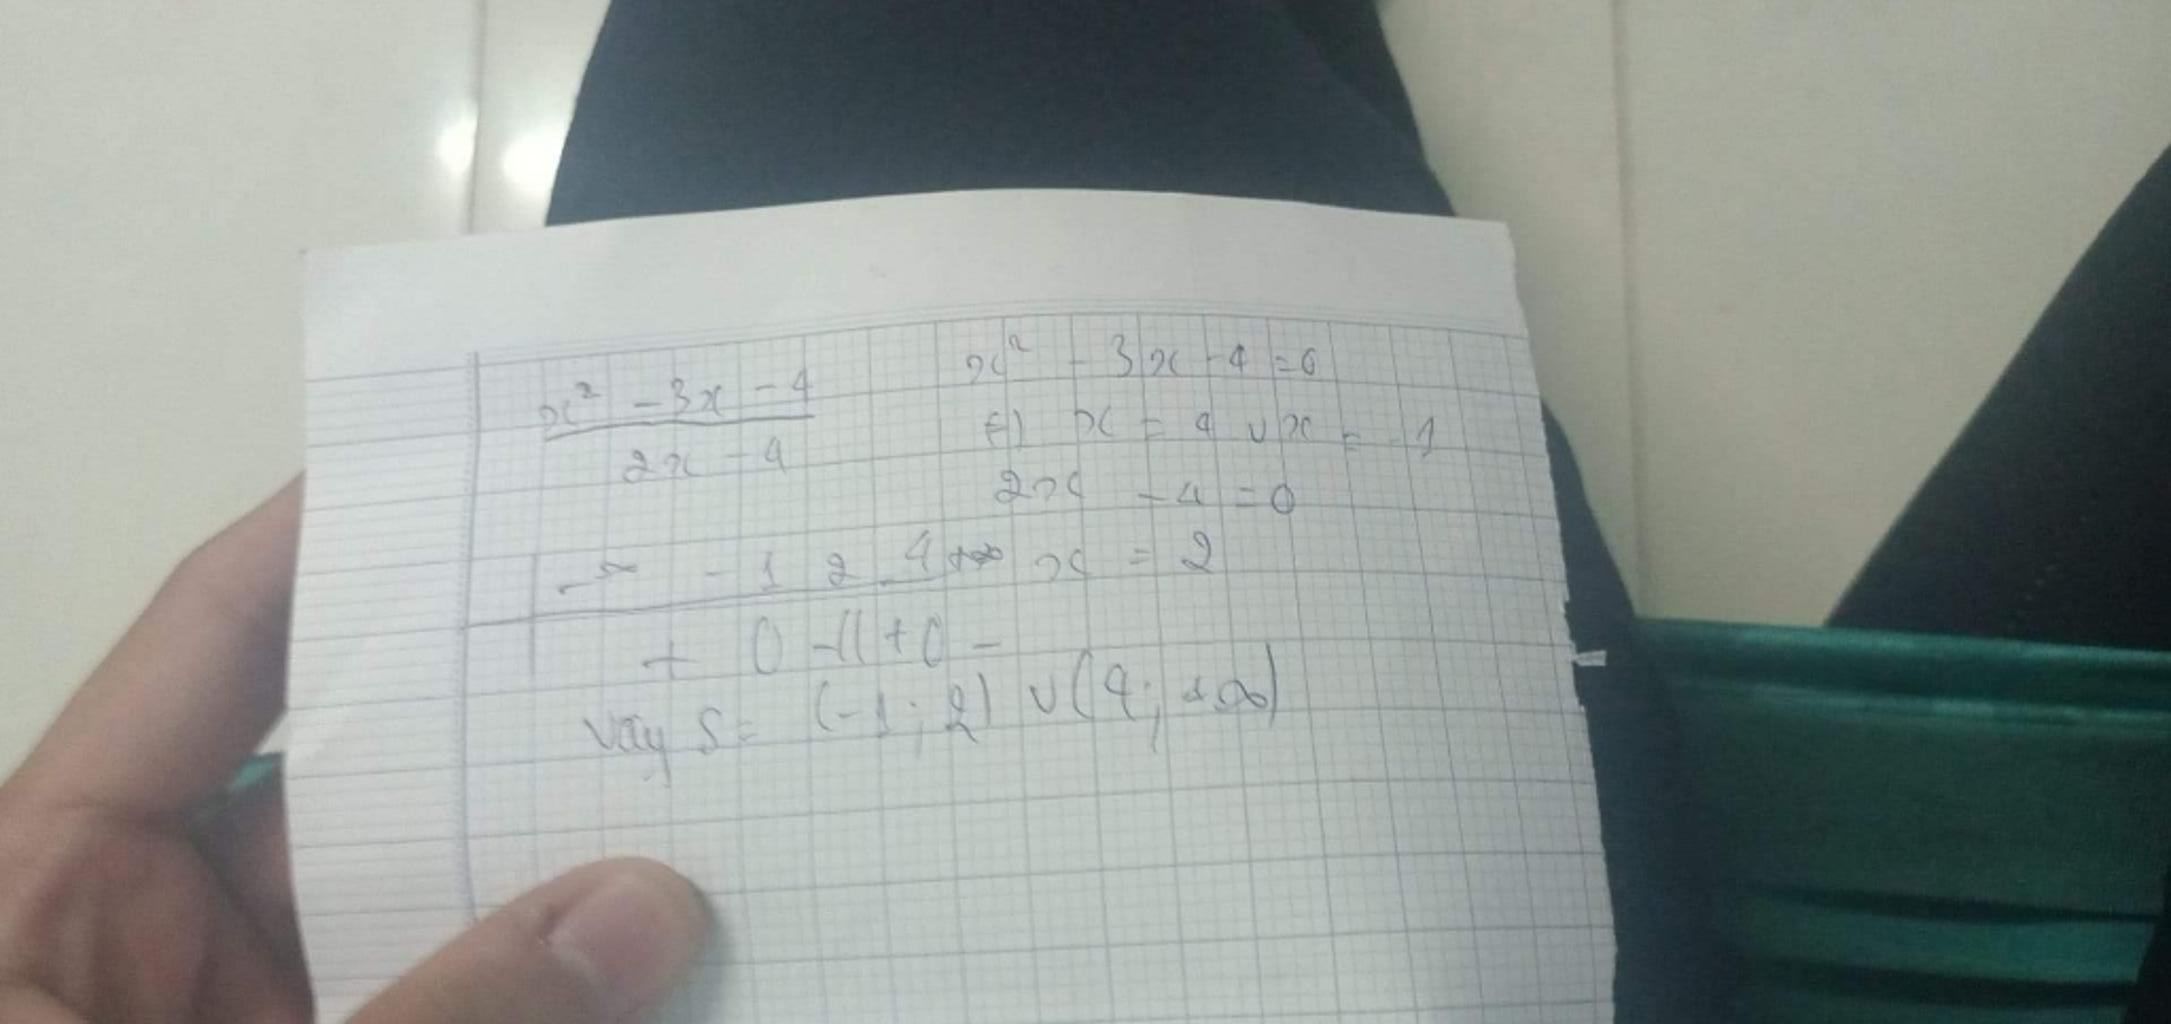 x² - 3x - 4
2x - 4
x² - 3x - 4 = 0
⇔ x = 4 ∪ x = -1
2x - 4 = 0
x = 2
-∞ -1 2 4 +∞
+ 0 - || + 0 -
Vậy S = (-1; 2) ∪ (4; +∞)